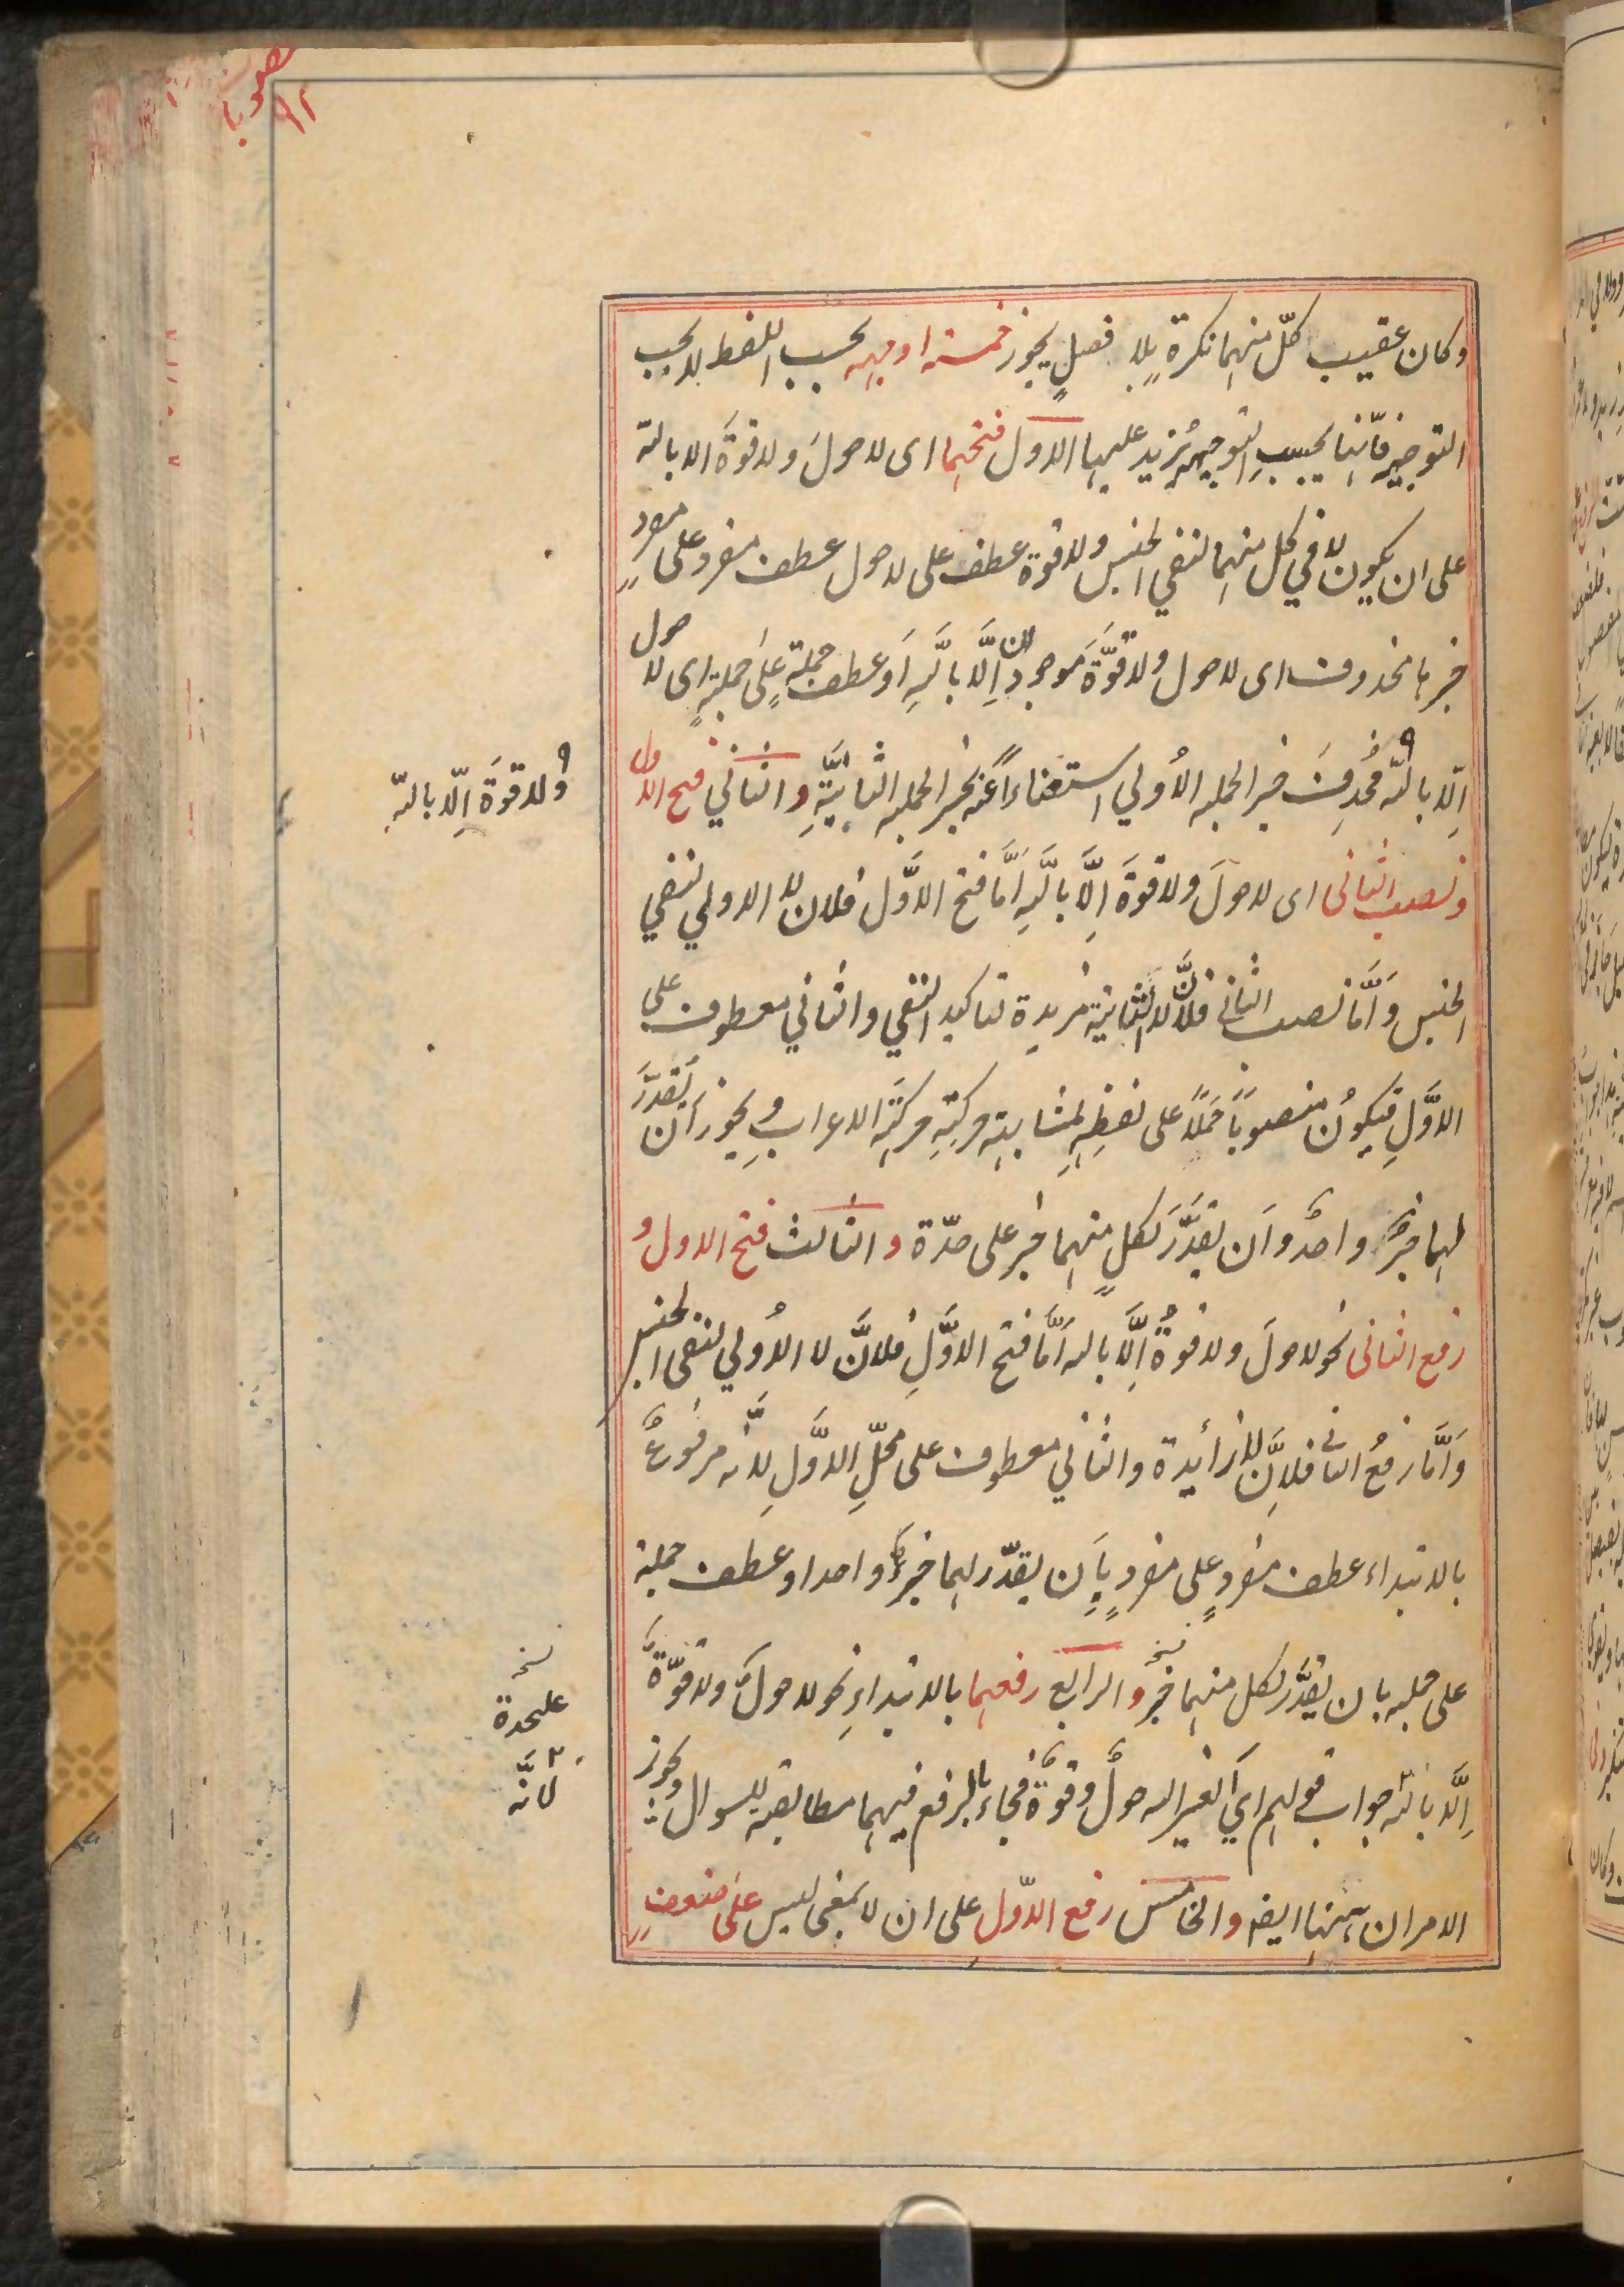 وكان عقيب كلّ منهما نكرة بلا فصلٍ يجوز خمسة اوجه بحسب اللفظ لا بحسب
التوجيه فانّها بحسبِ التوجيه تُزيد عليها الاول فتحهما اى لا حولَ ولا قوةَ الا بالله
على ان يكون لا في كل منهما لنفي الجنس ولا قوة عطف على لا حول عطف مفرد على مفردٍ
خبرها محذوف اى لا حول ولا قوَّةَ موجودان اِلَّا باللهِ اَو عطف جملةٍ علىٰ جملةٍ اى لا حول
اِلّا بالله فحُذِفَ خبر الجمله الاُولي استغناءاً عنه بخبر الجمله الثانيَّةِ والثاني فتح الاول
ونصب الثانى اى لا حولَ ولا قوةَ اِلَّا باللهِ امَّا فتح الاوَّل فلان لا الاولي لنفي
الجنس وَامَّا نصب الثانى فلانَّ لا الثانية مزيدة لتاكيد النفي والثاني معطوف على
الاوَّلِ فيكونُ منصوباً حَملاً على لفظِهِ لمشابهةِ حركتِهِ حركتَه الاعرابِ ويجوز اَن يُقدَّرَ
لهما خبرٌ واحدٌ واَن يقدَّرَ لكلٍ منهما خبر على حدّة والثالث فتح الاول و
رفع الثانى نحو لا حولَ ولا قوةٌ اِلَّا بالله امَّا فتح الاوَّلِ فلانَّ لا الاُولي لنفى الجنس
وَامَّا رفعُ الثانى فلانَّ لا زائيدة والثاني معطوف على محلِّ الاوَّلِ لانَّه مرفوعٌ
بالابتداء عطف مفردٍ على مفردٍ بِاَن يقدّر لهما خبراً واحدا وعطف جملة
على جمله بان يقدَّر لكل منهما خبر والرابع رفعهما بالابتداءِ نحو لا حولٌ ولا قوّةٌ
اِلَّا بالله جواب قولهم اىَ بغير الله حولٌ وقوةٌ فجاءَ بالرفع فيهما مطابقة للسوال ويجوز
الامران ههنا ايضا والخامس رفع الاوّل على ان لا بمعنى ليس علىٰ ضعفٍ
ولا قوةَ اِلّا باللهِ
نسخه
عليحدة
لانَّه